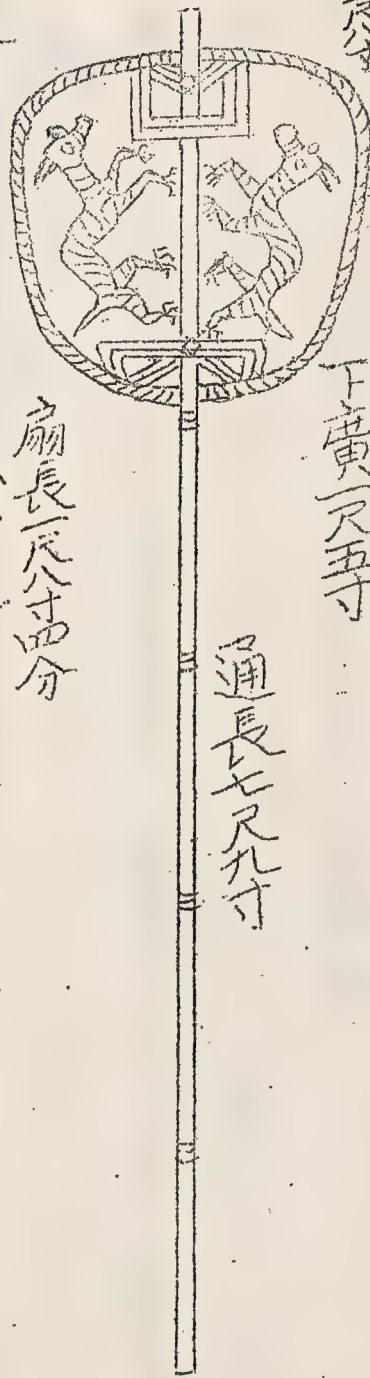 下廣一尺五寸
通長七尺九寸
扇長一尺八寸四分